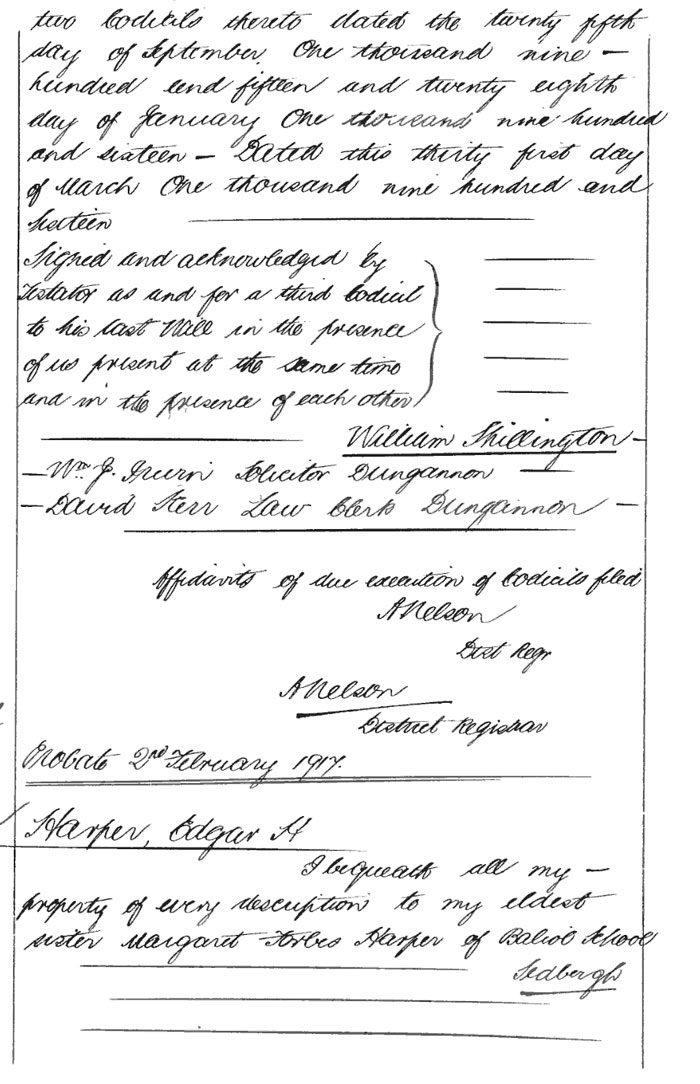 two Codicils thereto dated the twenty fifth
day of September One thousand nine —
hundred and fifteen and twenty eighth
day of January One thousand nine hundred
and sixteen — Dated this thirty first day
of March One thousand nine hundred and
sixteen
Signed and acknowledged by
Testator as and for a third Codicil
to his Last Will in the presence
of us present at the same time
and in the presence of each other
William Shillington —
— Wm. J. Irwin Solicitor Dungannon —
— David Kerr Law Clerk Dungannon —
Affidavits of due execution of Codicils filed
A Nelson
Dist Regr
A Nelson
District Registrar
Probate 2nd February 1917.
Harper, Edgar H
I bequeath all my —
property of every description to my eldest
sister Margaret Forbes Harper of Baliol School
Sedbergh